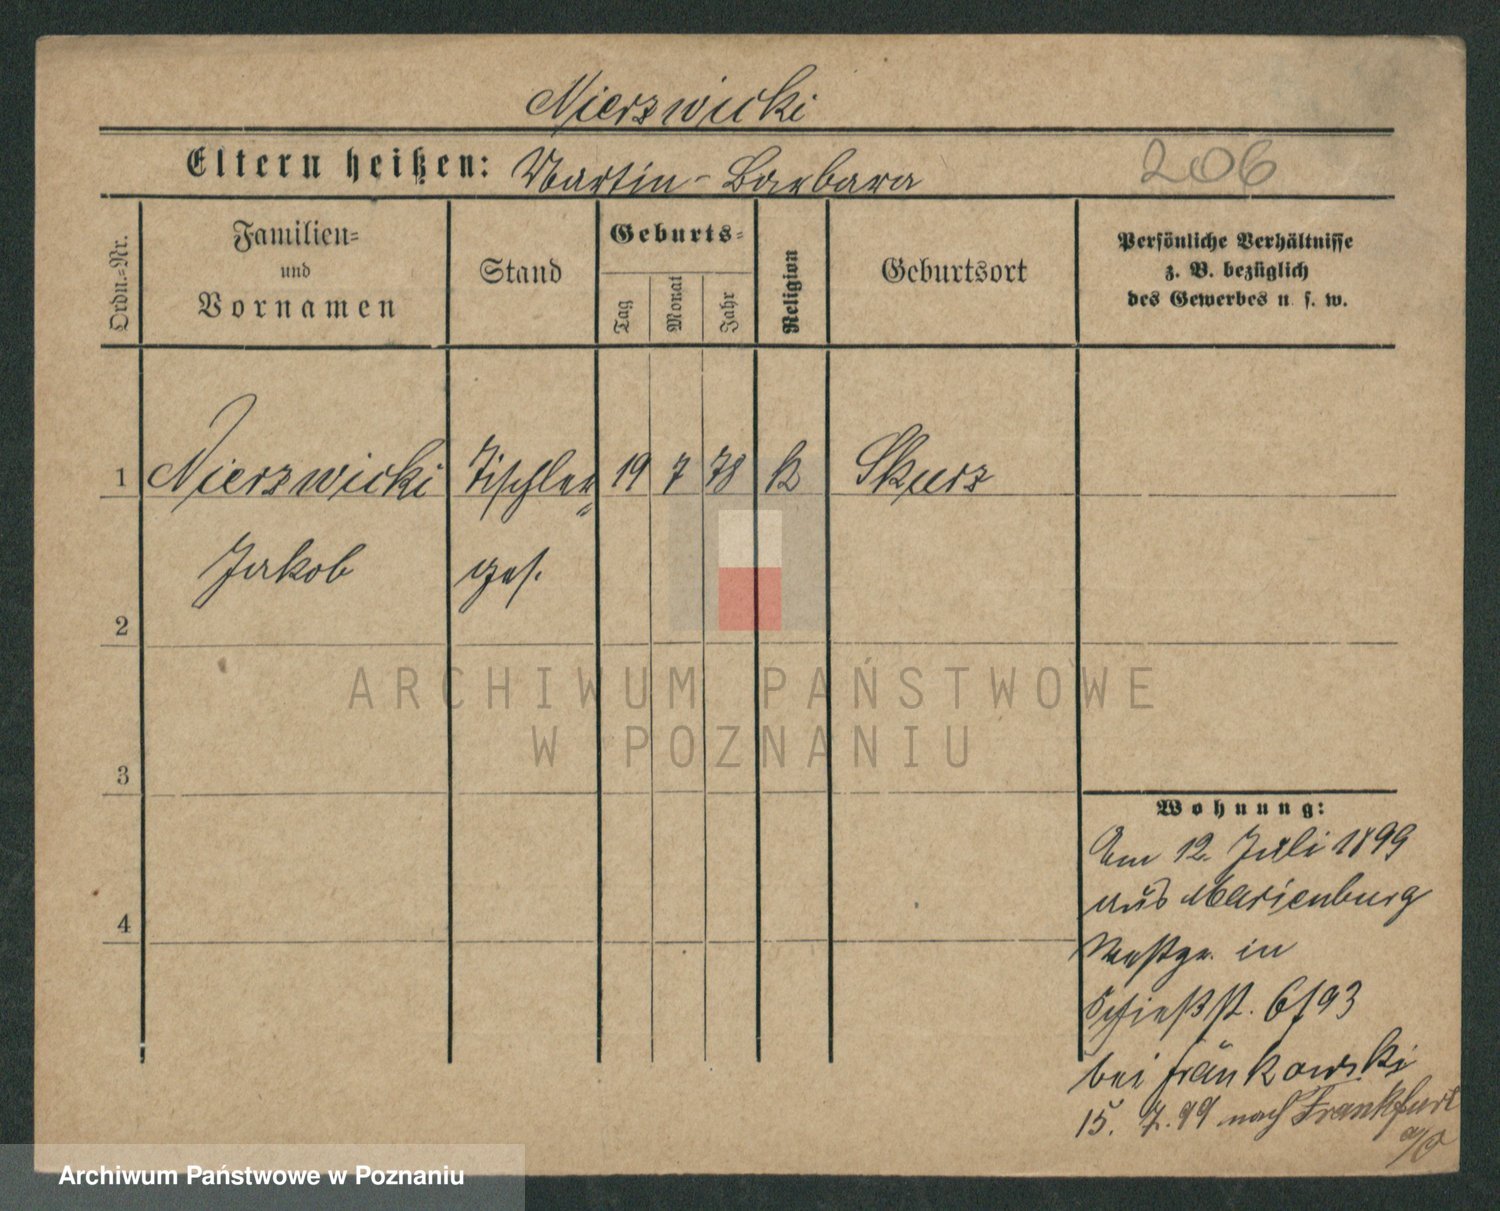 Nierzwicki
Eltern heißen: Martin - Barbara
206
Ordn.-Nr.
Familien-
und
Vornamen
Stand
Geburts-
Tag
Monat
Jahr
Religion
Geburtsort
Persönliche Verhältnisse
z. B. bezüglich
des Gewerbes u. s. w.
1 Nierzwicki Tischler 19 7 78 k Skurz
Jakob ges.
2
3
4
Wohnung:
Am 12. Juli 1899
aus Marienburg
Westpr. in
Schießst. 6/93
bei Fränkowski
15. 7. 99 nach Frankfurt
a/O
ARCHIWUM PAŃSTWOWE
W POZNANIU
Archiwum Państwowe w Poznaniu